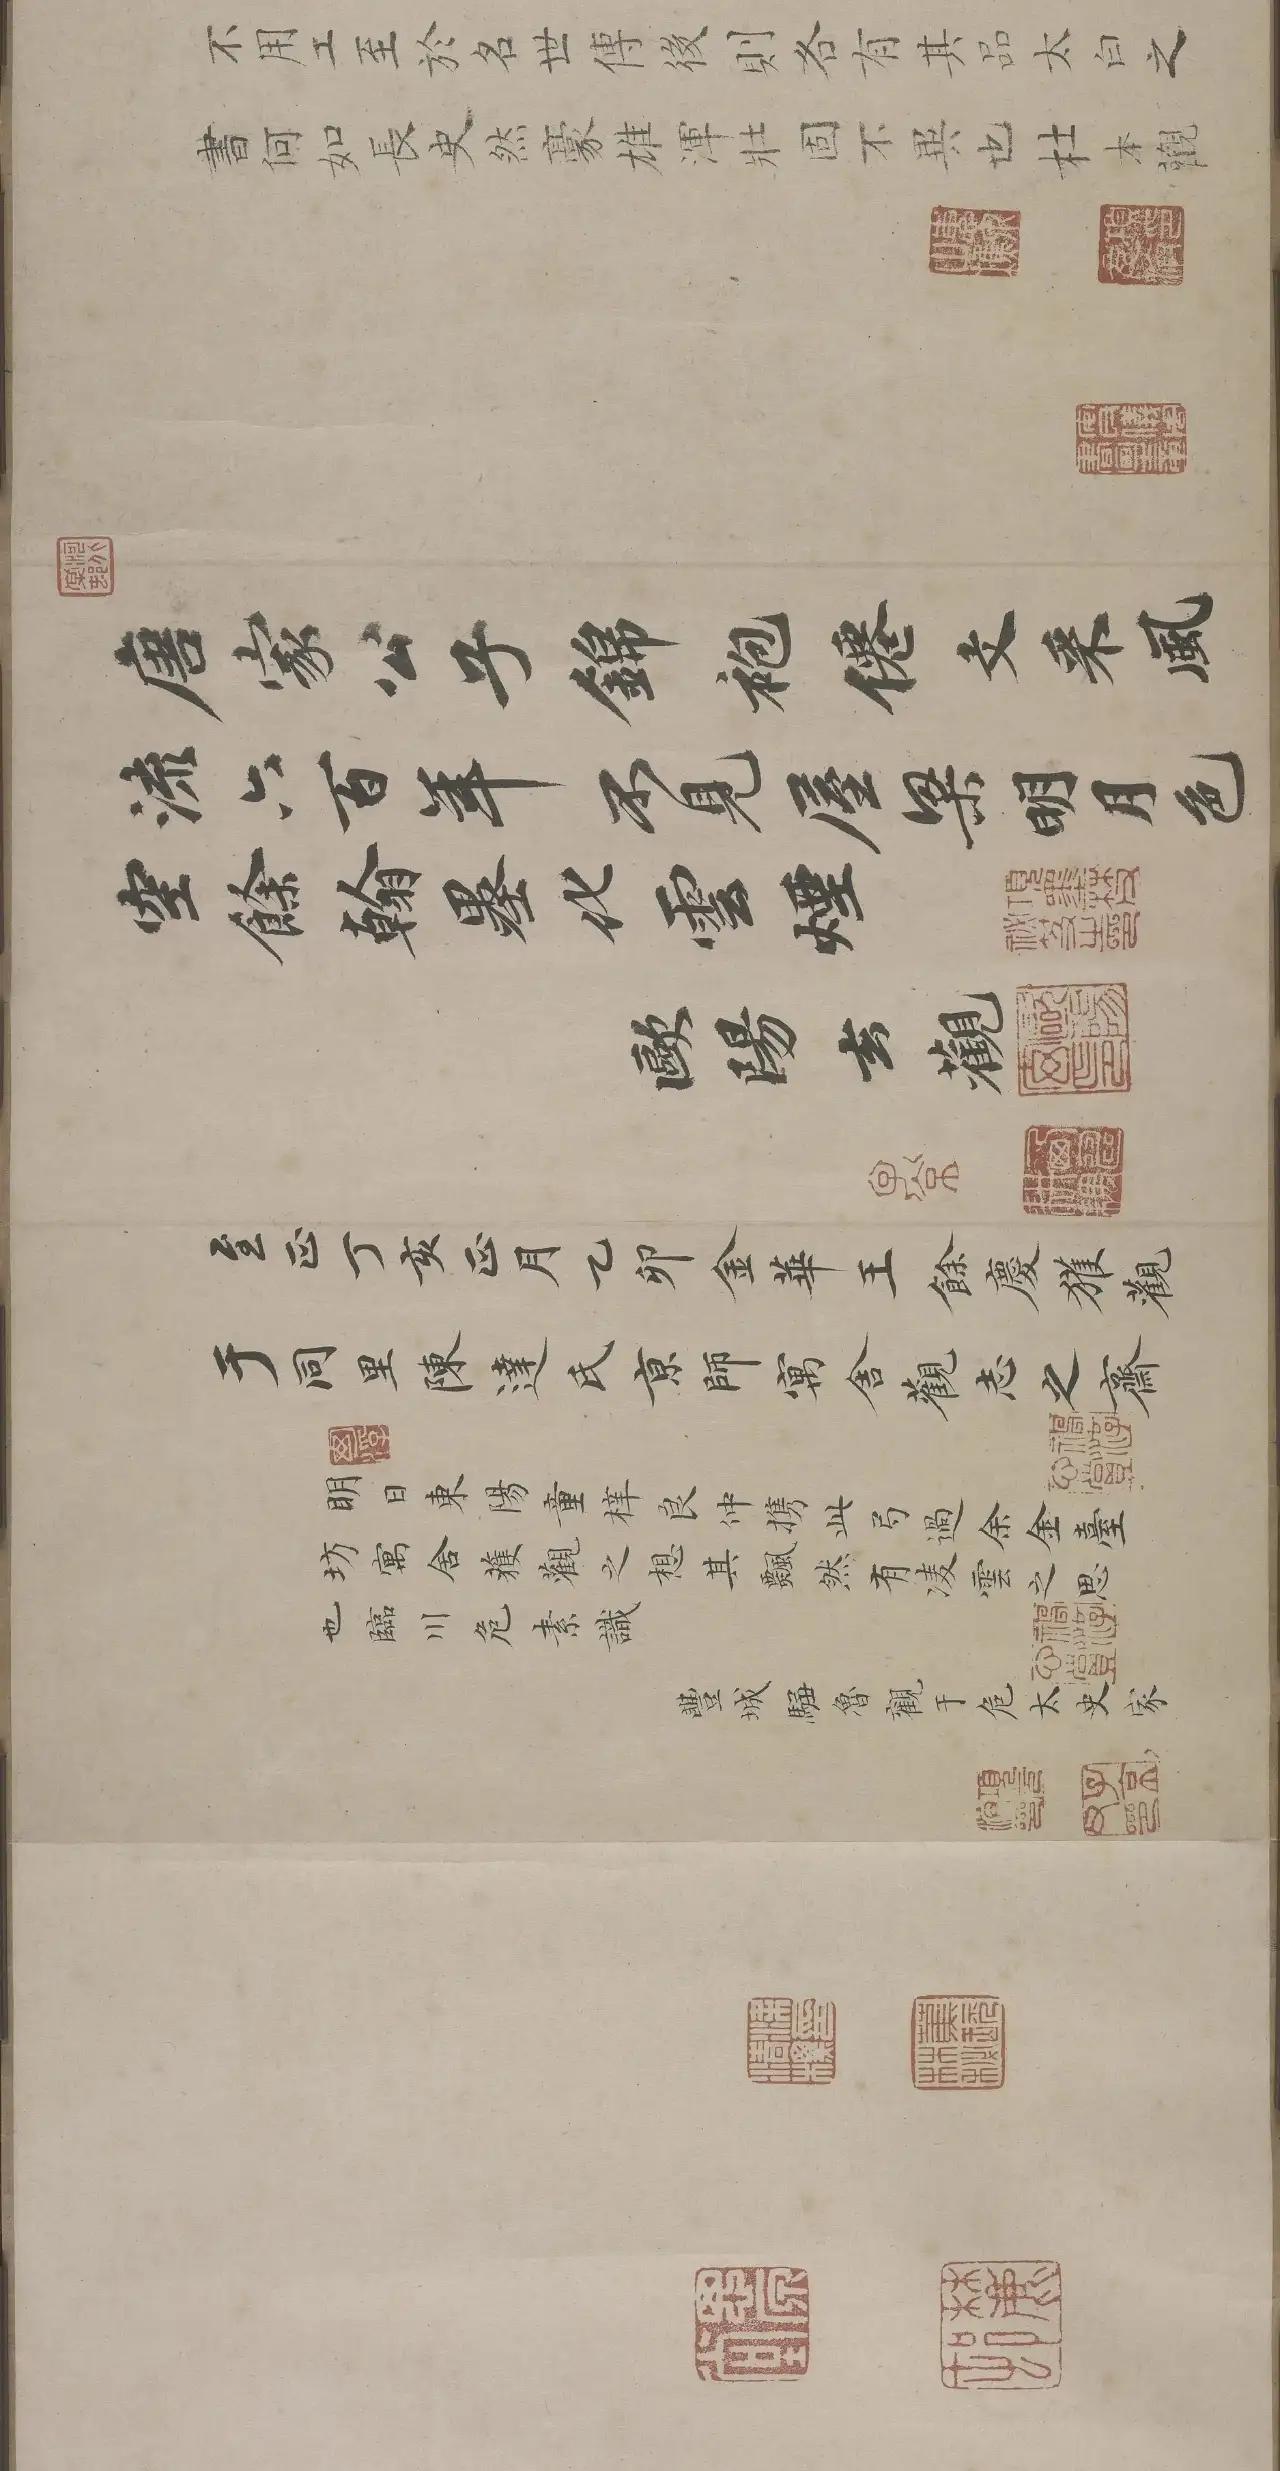 不用工至於名世傳後則各有其品太白之
書何如長史然豪雄渾壯固不異也杜本觀
唐家公子錦袍僊文采風
流六百年不見屋梁明月色
空餘翰墨化雲煙
歐陽玄觀
至正丁亥正月乙卯金華王餘慶獲觀
于同里陳達氏京師寓舍觀志之齋
明日東陽童梓良仲携此弓過余金臺
坊寓舍獲觀之想其飄然有凌雲之思
也臨川危素識
豐城騶魯觀于危太史家